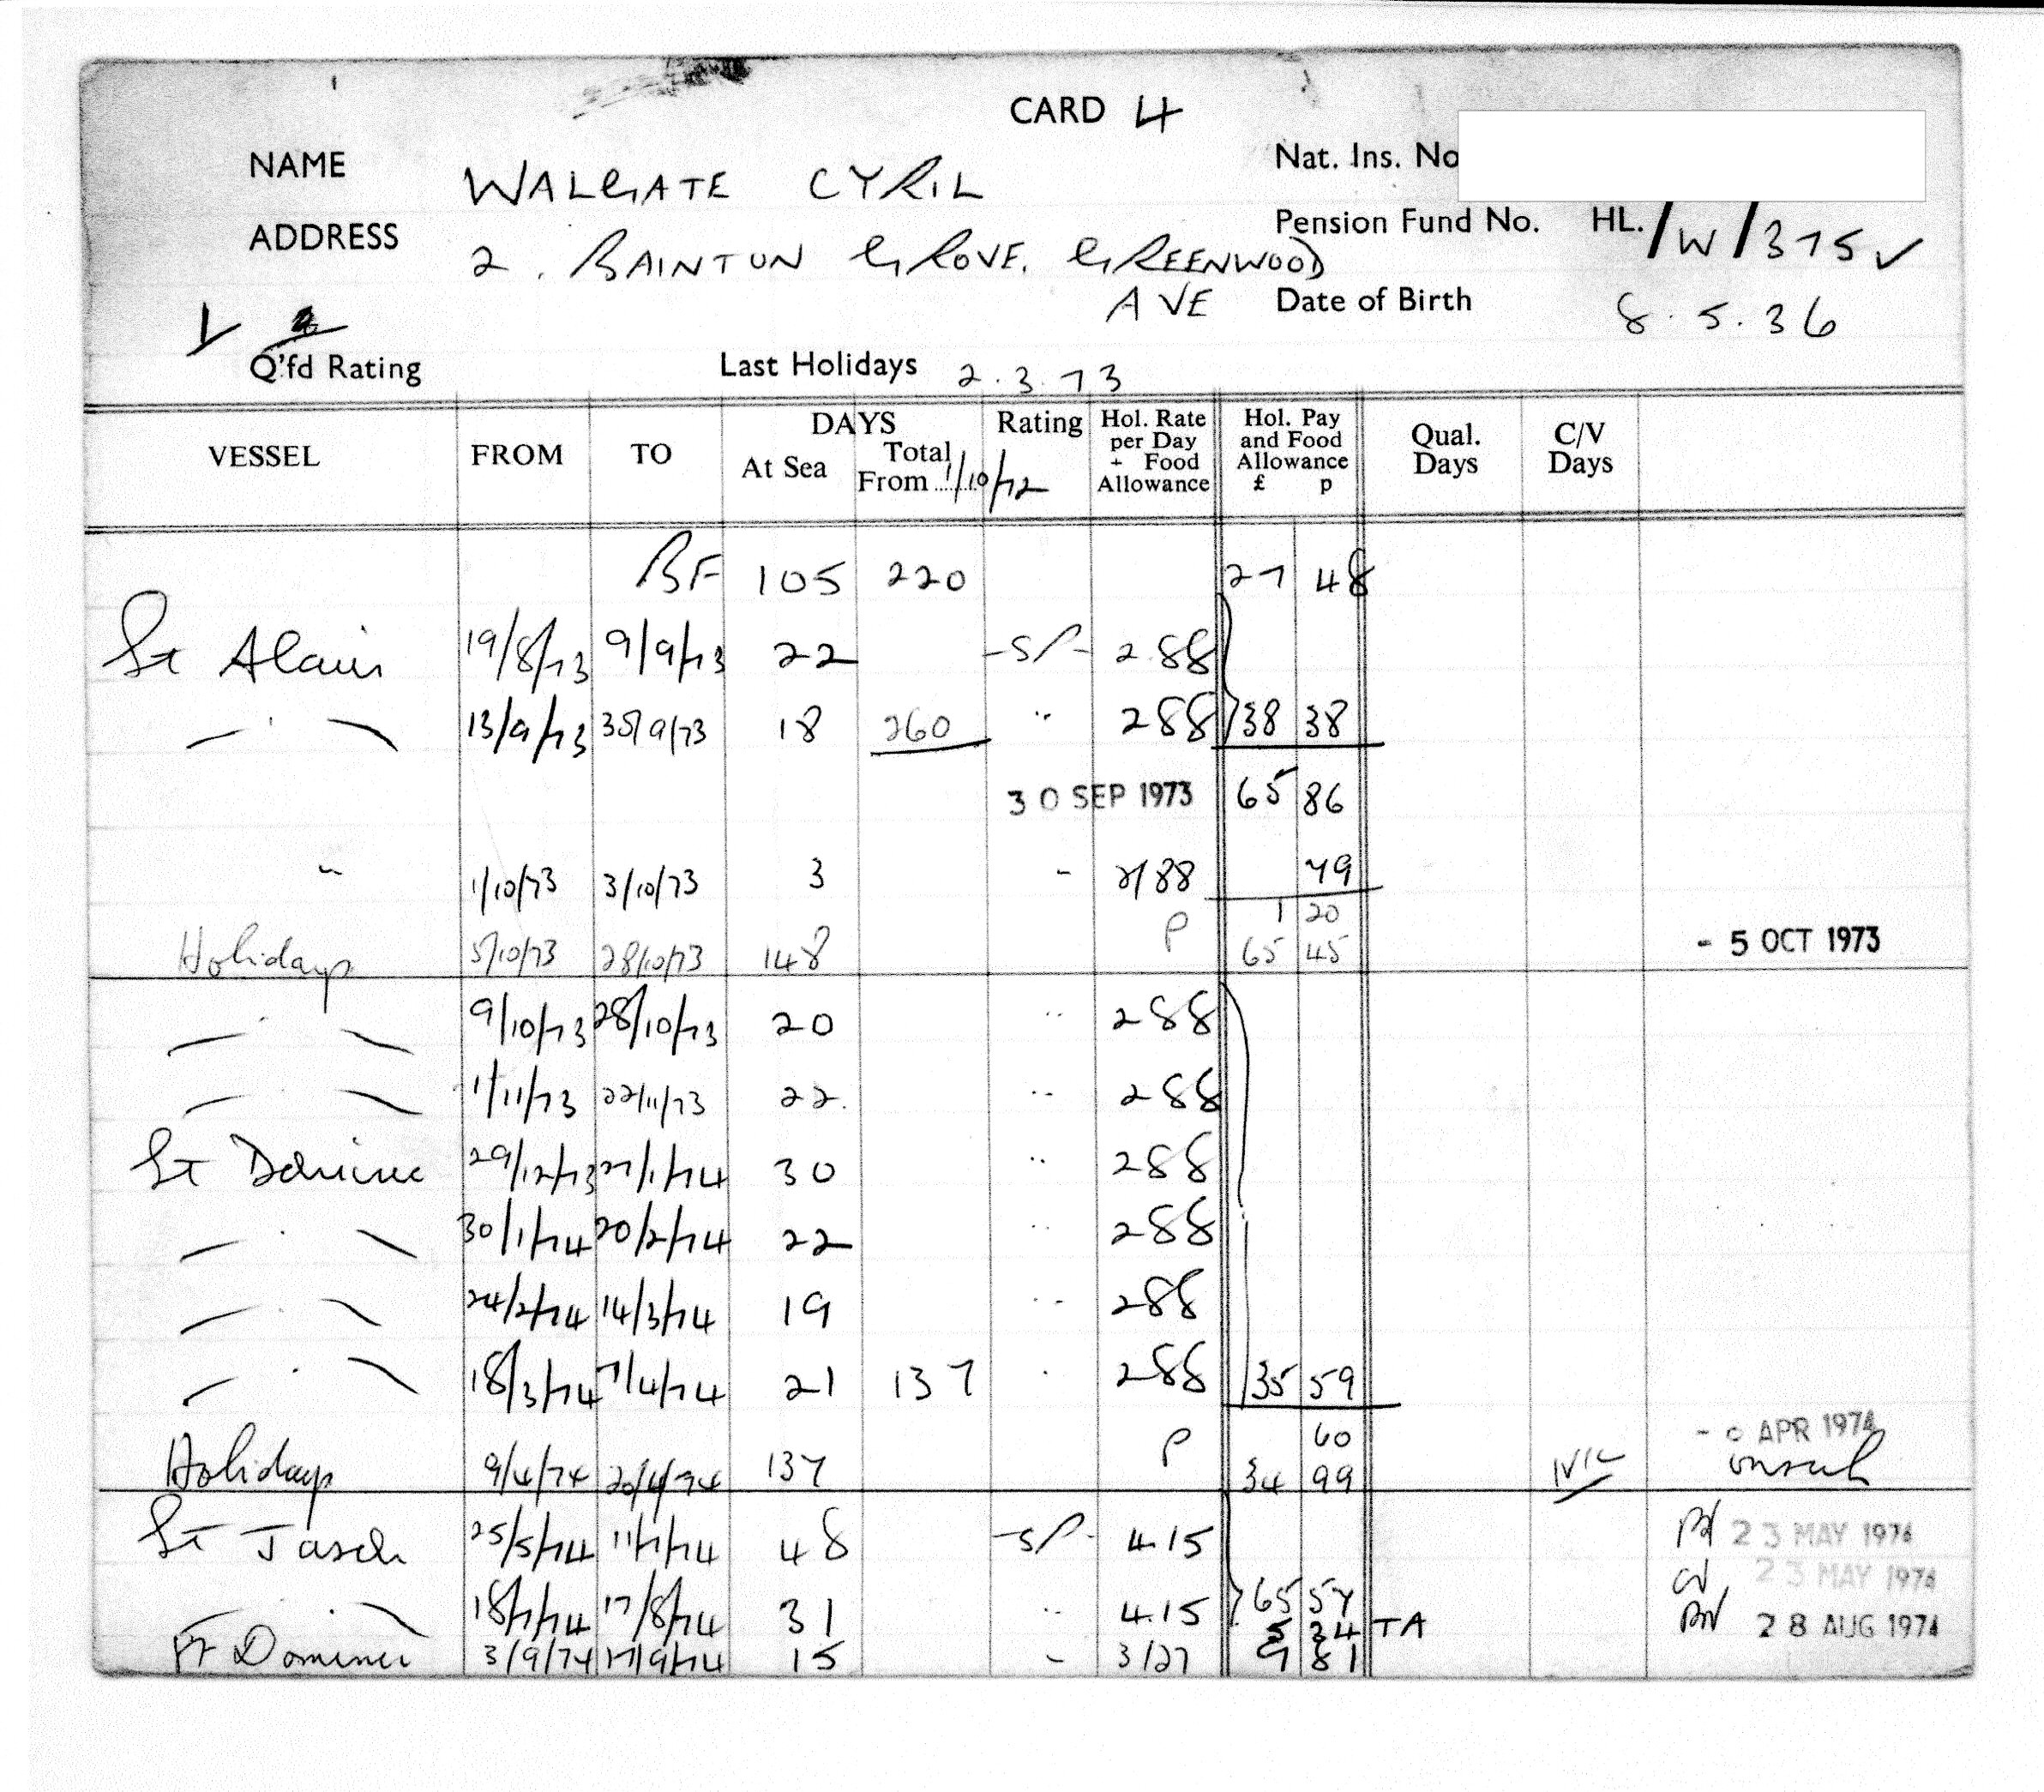 CARD 4
NAME WALGATE CYRIL Nat. Ins. No
ADDRESS 2. BAINTON GROVE. GREENWOOD Pension Fund No. HL./W/375 ✓
AVE Date of Birth 8.5.36
Q'fd Rating Last Holidays 2.3.73
VESSEL FROM TO DAYS At Sea Total From 1/10/72 Rating Hol. Rate per Day + Food Allowance Hol. Pay and Food Allowance £ p Qual. Days C/V Days
BF 105 220 27 48
St Alcuin 19/8/73 9/9/73 22 -S/- 2.88
— " — 13/9/73 30/9/73 18 260 " 288 38 38
30 SEP 1973 65 86
" 1/10/73 3/10/73 3 - 2/88 79
P 1 20
Holidays 5/10/73 28/10/73 148 65 45 - 5 OCT 1973
— " — 9/10/73 28/10/73 20 " 288
— " — 1/11/73 22/11/73 22 " 288
St Dominic 29/12/73 27/1/74 30 " 288
— " — 30/1/74 20/2/74 22 " 288
— " — 24/2/74 14/3/74 19 " 288
— " — 18/3/74 7/4/74 21 137 " 288 35 59
P 60 APR 1974
Holidays 9/4/74 20/4/74 137 34 99
St Jason 25/5/74 11/7/74 48 4.15 23 MAY 1974
23 MAY 1974
— " — 18/7/74 17/8/74 31 " 4.15 65 57 28 AUG 1974
5 34 TA
St Dominic 3/9/74 17/9/74 15 - 3/27 9 81